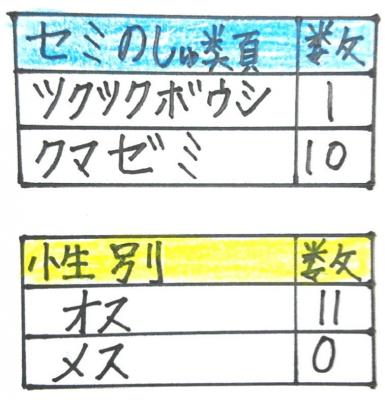 セミのしゅ類 数
ツクツクボウシ 1
クマゼミ 10
性別 数
オス 11
メス 0